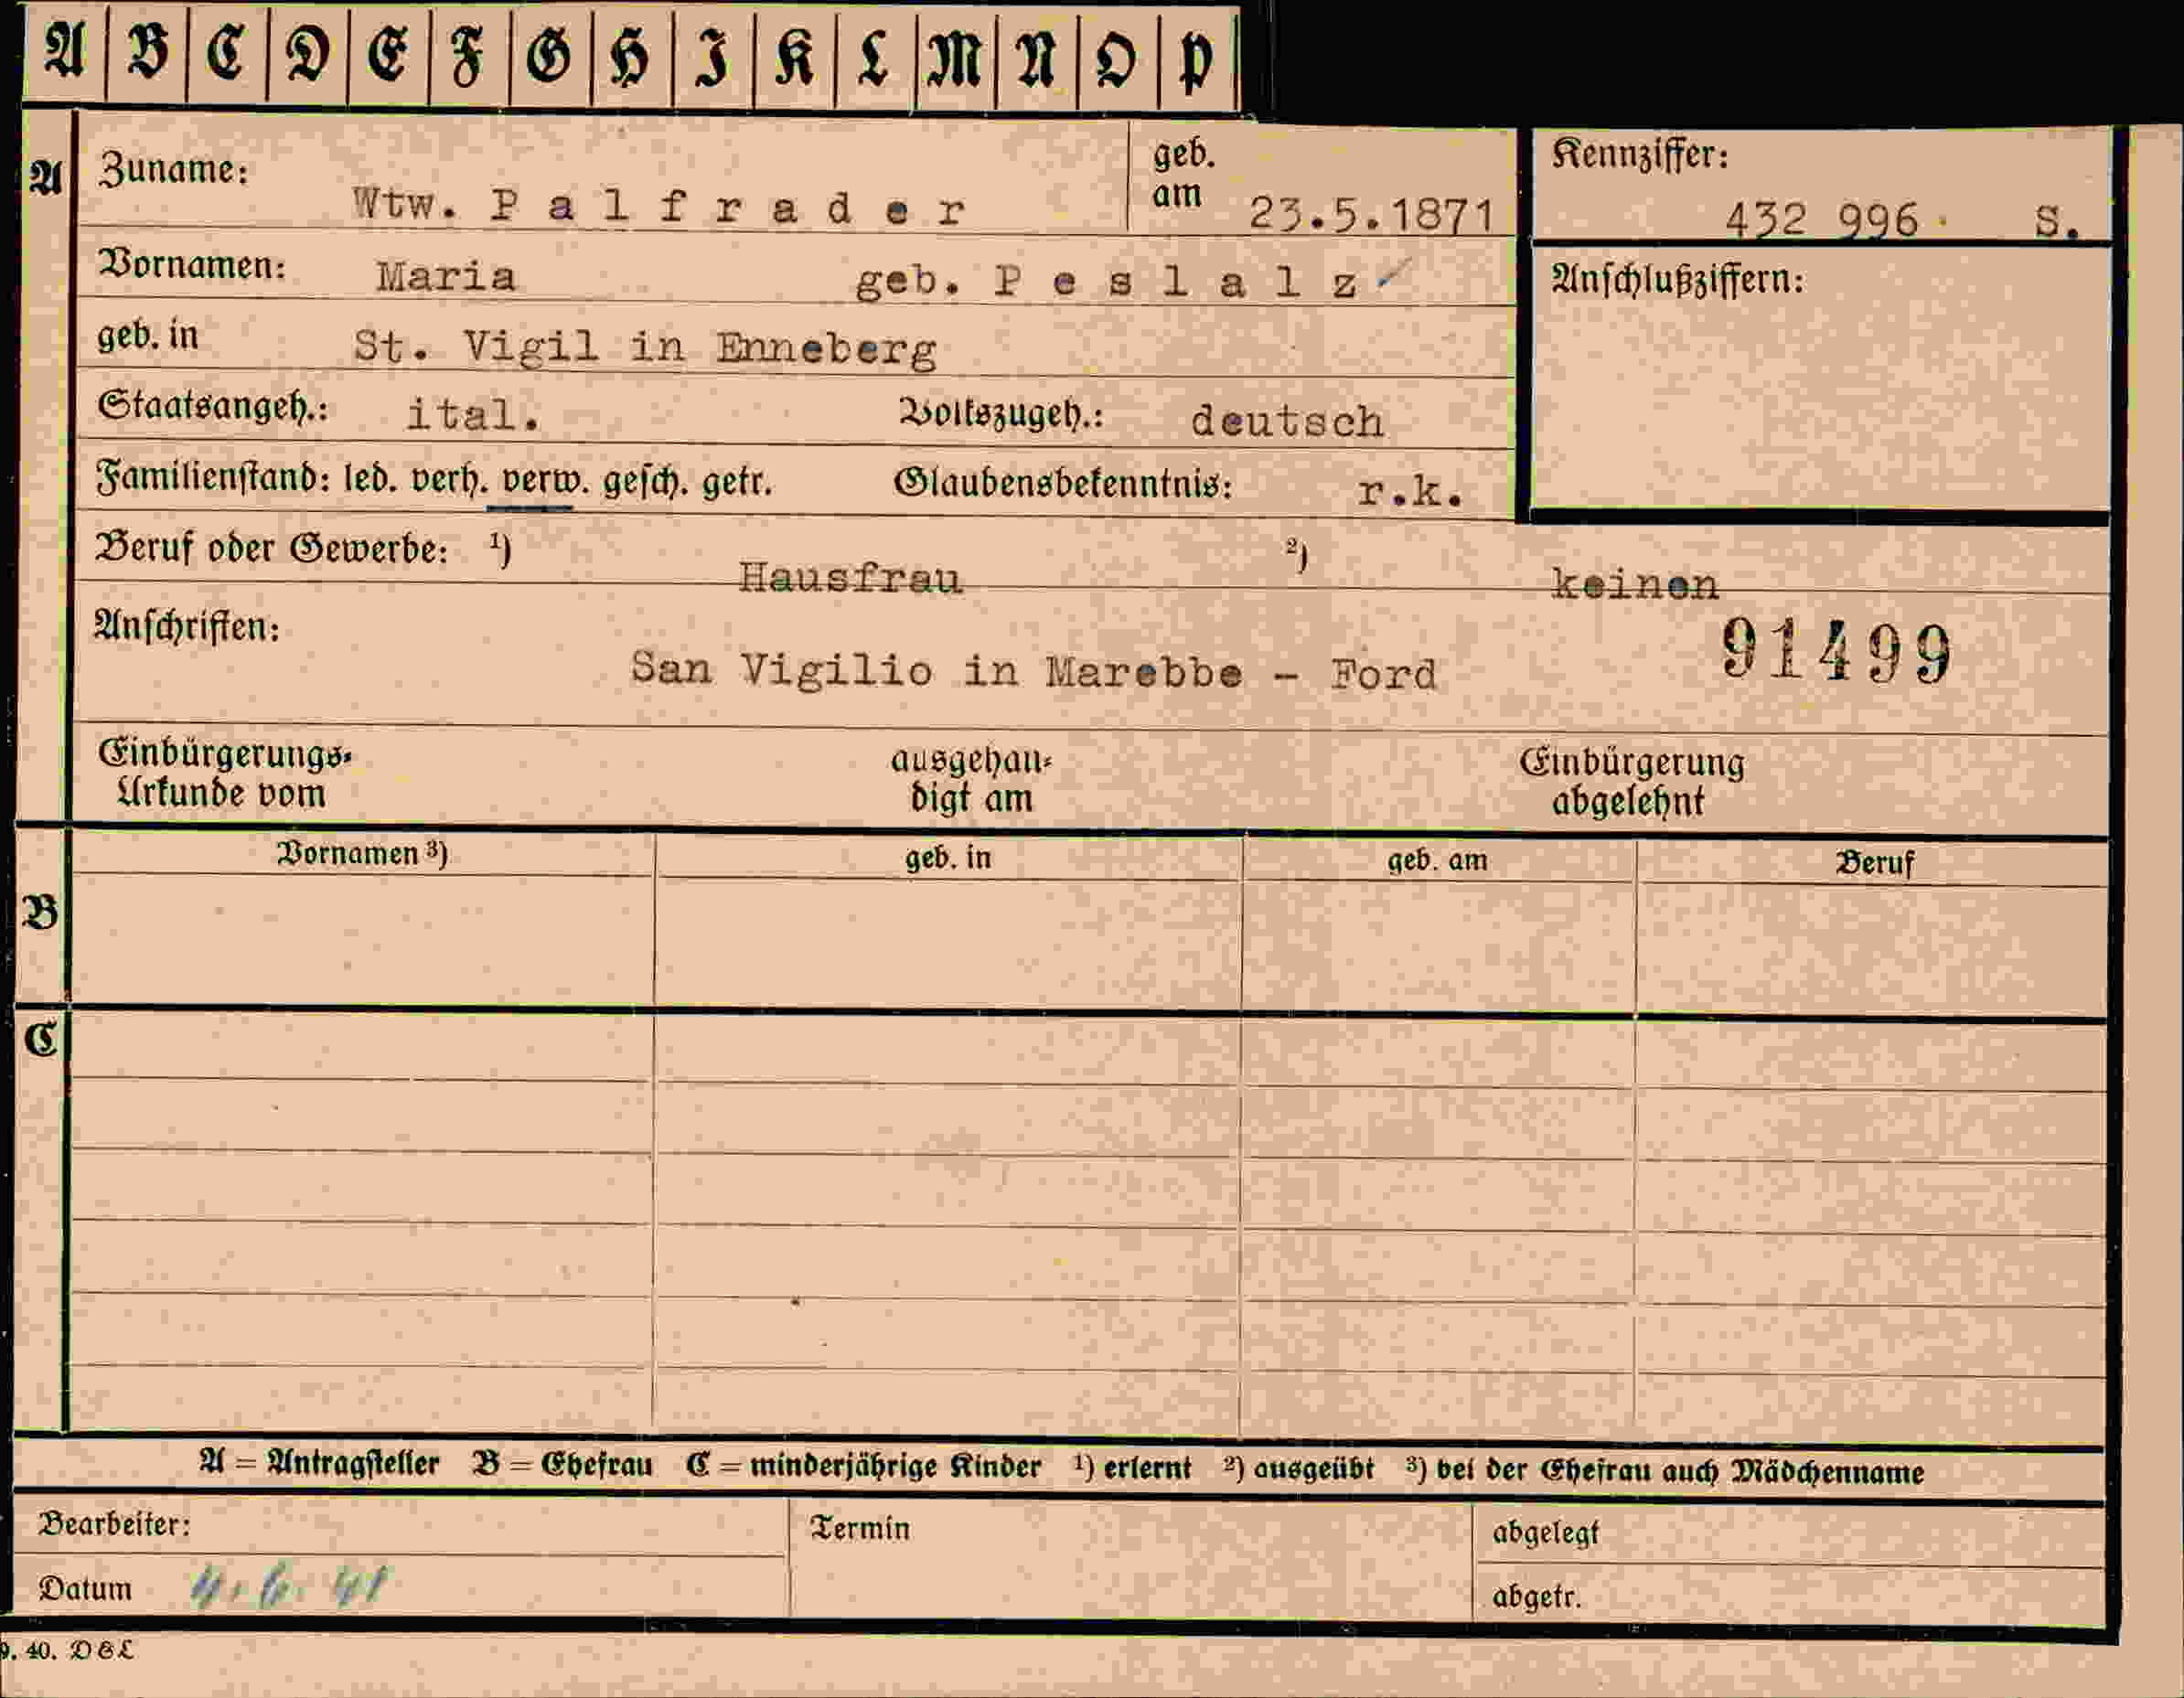 A B C D E F G H I K L M N O P
A Zuname: Wtw. P a l f r a d e r geb. am 23.5.1871 Kennziffer: 432 996 S.
Vornamen: Maria geb. P e s l a l z Anschlußziffern:
geb. in St. Vigil in Enneberg
Staatsangeh.: ital. Volkszugeh.: deutsch
Familienstand: led. verh. verw. gesch. getr. Glaubensbekenntnis: r.k.
Beruf oder Gewerbe: ¹) Hausfrau ²) keinen
Anschriften: 91499
San Vigilio in Marebbe - Ford
Einbürgerungs- ausgehän- Einbürgerung
Urkunde vom digt am abgelehnt
Vornamen ³) geb. in geb. am Beruf
B
C
A = Antragsteller B = Ehefrau C = minderjährige Kinder ¹) erlernt ²) ausgeübt ³) bei der Ehefrau auch Mädchenname
Bearbeiter: Termin abgelegt
Datum 4. 6. 41 abgetr.
9. 40. DGL